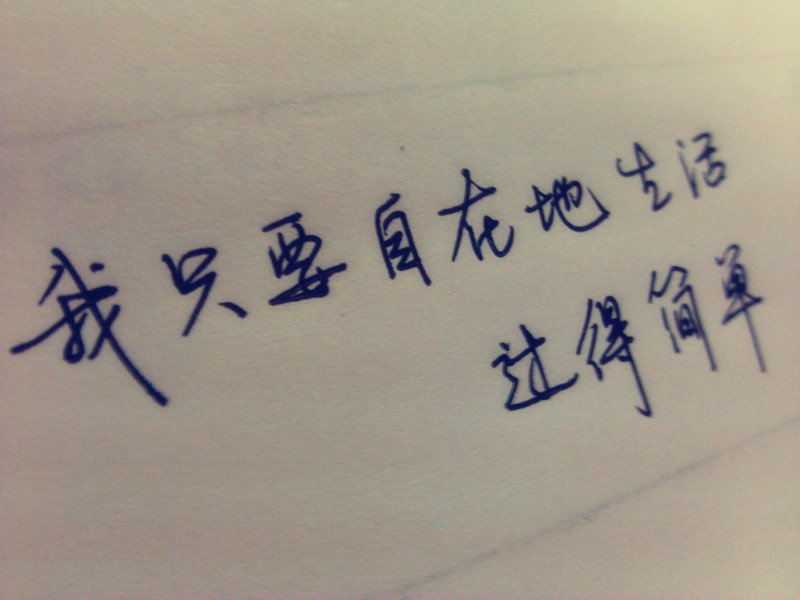 我只要自在地生活
过得简单